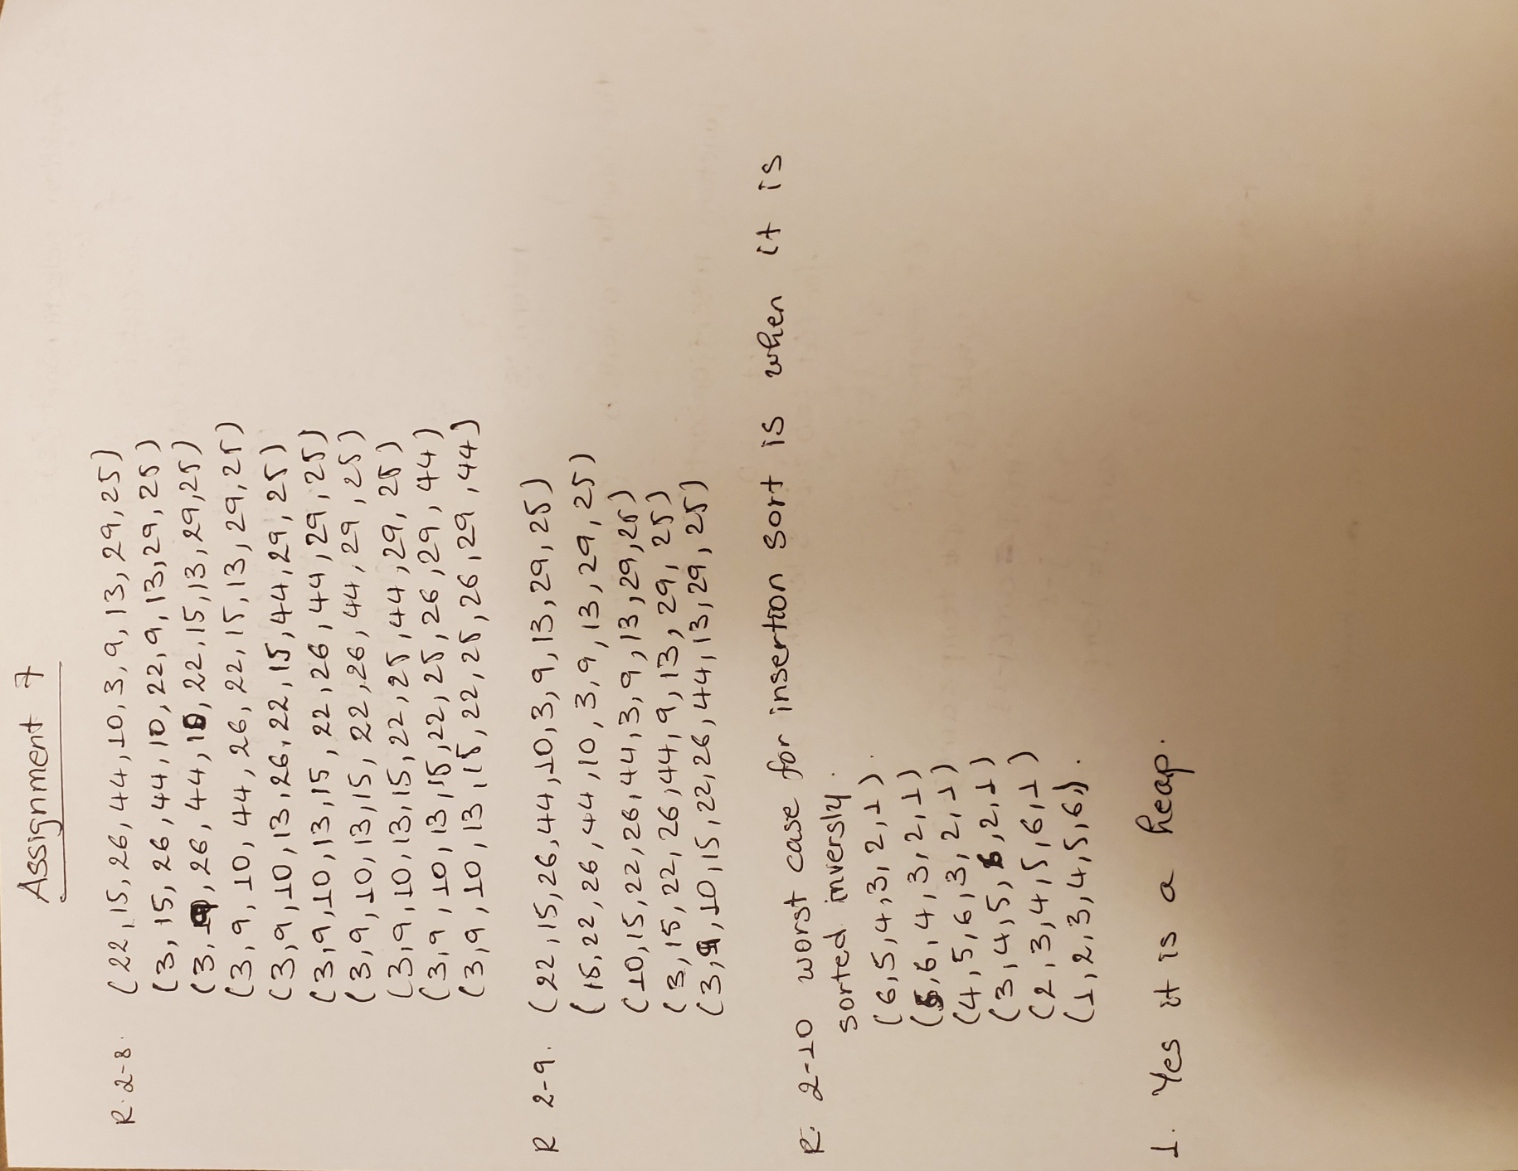 Assignment 7
R. 2-8. (22,15,26,44,10,3,9,13,29,25)
(3,15,26,44,10,22,9,13,29,25)
(3,9,26,44,10,22,15,13,29,25)
(3,9,10,44,26,22,15,13,29,25)
(3,9,10,13,26,22,15,44,29,25)
(3,9,10,13,15,22,26,44,29,25)
(3,9,10,13,15,22,26,44,29,25)
(3,9,10,13,15,22,25,44,29,25)
(3,9,10,13,15,22,25,26,29,44)
(3,9,10,13,15,22,25,26,29,44)
R 2-9. (22,15,26,44,10,3,9,13,29,25)
(15,22,26,44,10,3,9,13,29,25)
(10,15,22,26,44,3,9,13,29,25)
(3,15,22,26,44,9,13,29,25)
(3,9,10,15,22,26,44,13,29,25)
R. 2-10 worst case for insertion sort is when it is
sorted inversly.
(6,5,4,3,2,1).
(5,6,4,3,2,1)
(4,5,6,3,2,1)
(3,4,5,6,2,1)
(2,3,4,5,6,1)
(1,2,3,4,5,6).
1. Yes it is a heap.